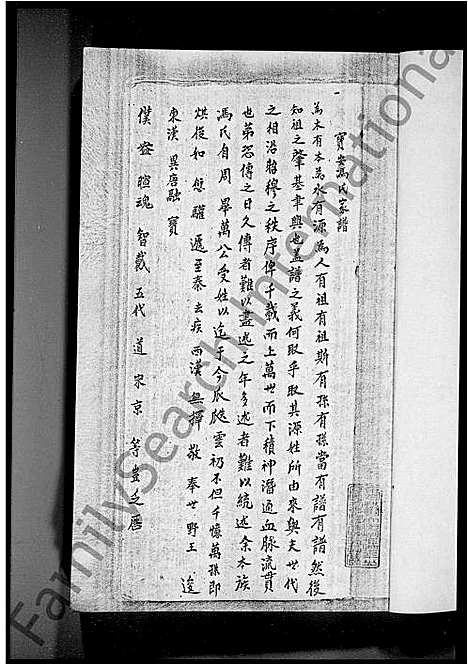 寶安馮氏家譜
為木有本為水有源為人有祖有祖斯有孫有孫當有譜有譜然後
知祖之肇基聿興也蓋譜之義何取乎取其源姓所由來與夫世代
之相沿昭穆之秩序俾千載而上萬世而下積神潛通血脉流貫
也第恐傳之日久傳者難以盡述之年多述者難以統述余本族
馮氏自周畢萬公受姓以迄于今瓜瓞雲初不但千憶萬孫即
烘俊如 驩遞至秦去疾而漢無擇敬奉世野王逡
東漢異唐融寶
僕 暄魂智戴五代道宋京等豈乏
FamilySearch International